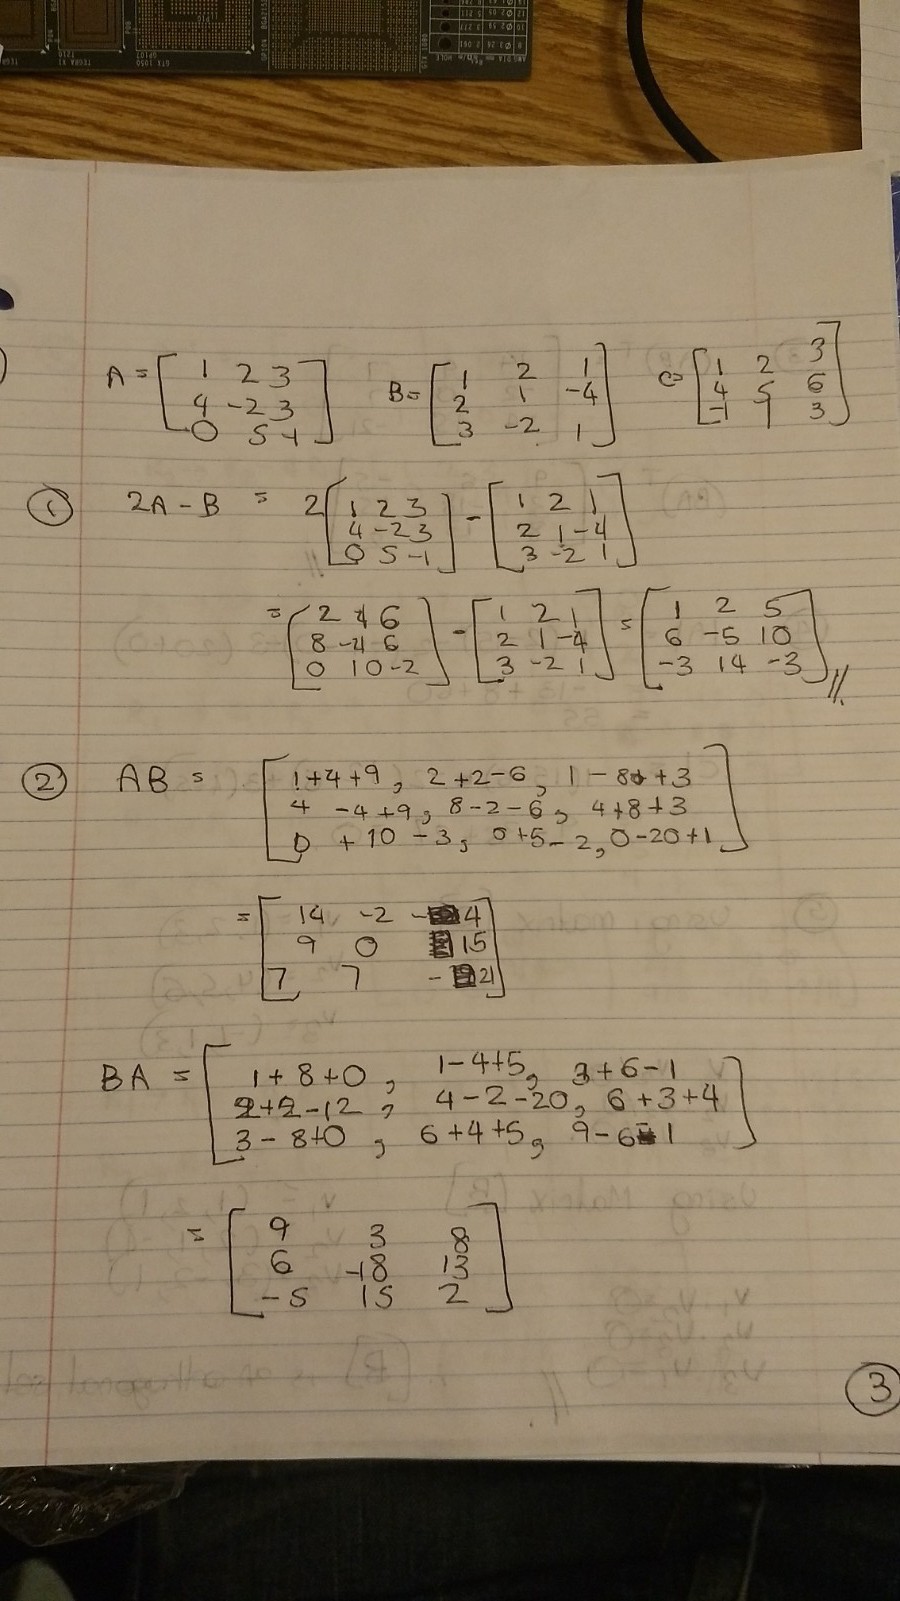 GTX 1050
TEGRA X1
A = [ 1 2 3
4 -2 3
0 5 -1 ]
B = [ 1 2 1
2 1 -4
3 -2 1 ]
C = [ 1 2 3
4 5 6
-1 1 3 ]
① 2A - B = 2 [ 1 2 3
4 -2 3
0 5 -1 ] - [ 1 2 1
2 1 -4
3 -2 1 ]
= [ 2 4 6
8 -4 6
0 10 -2 ] - [ 1 2 1
2 1 -4
3 -2 1 ] = [ 1 2 5
6 -5 10
-3 14 -3 ] //.
② AB = [ 1+4+9, 2+2-6, 1-8+3
4 -4+9, 8-2-6, 4+8+3
0 + 10 - 3, 0+5-2, 0-20+1 ]
= [ 14 -2 -4
9 0 15
7 7 -21 ]
BA = [ 1+8+0, 1-4+5, 3+6-1
2+2-12, 4-2-20, 6+3+4
3-8+0, 6+4+5, 9-6-1 ]
= [ 9 3 8
6 -18 13
-5 15 2 ]
③